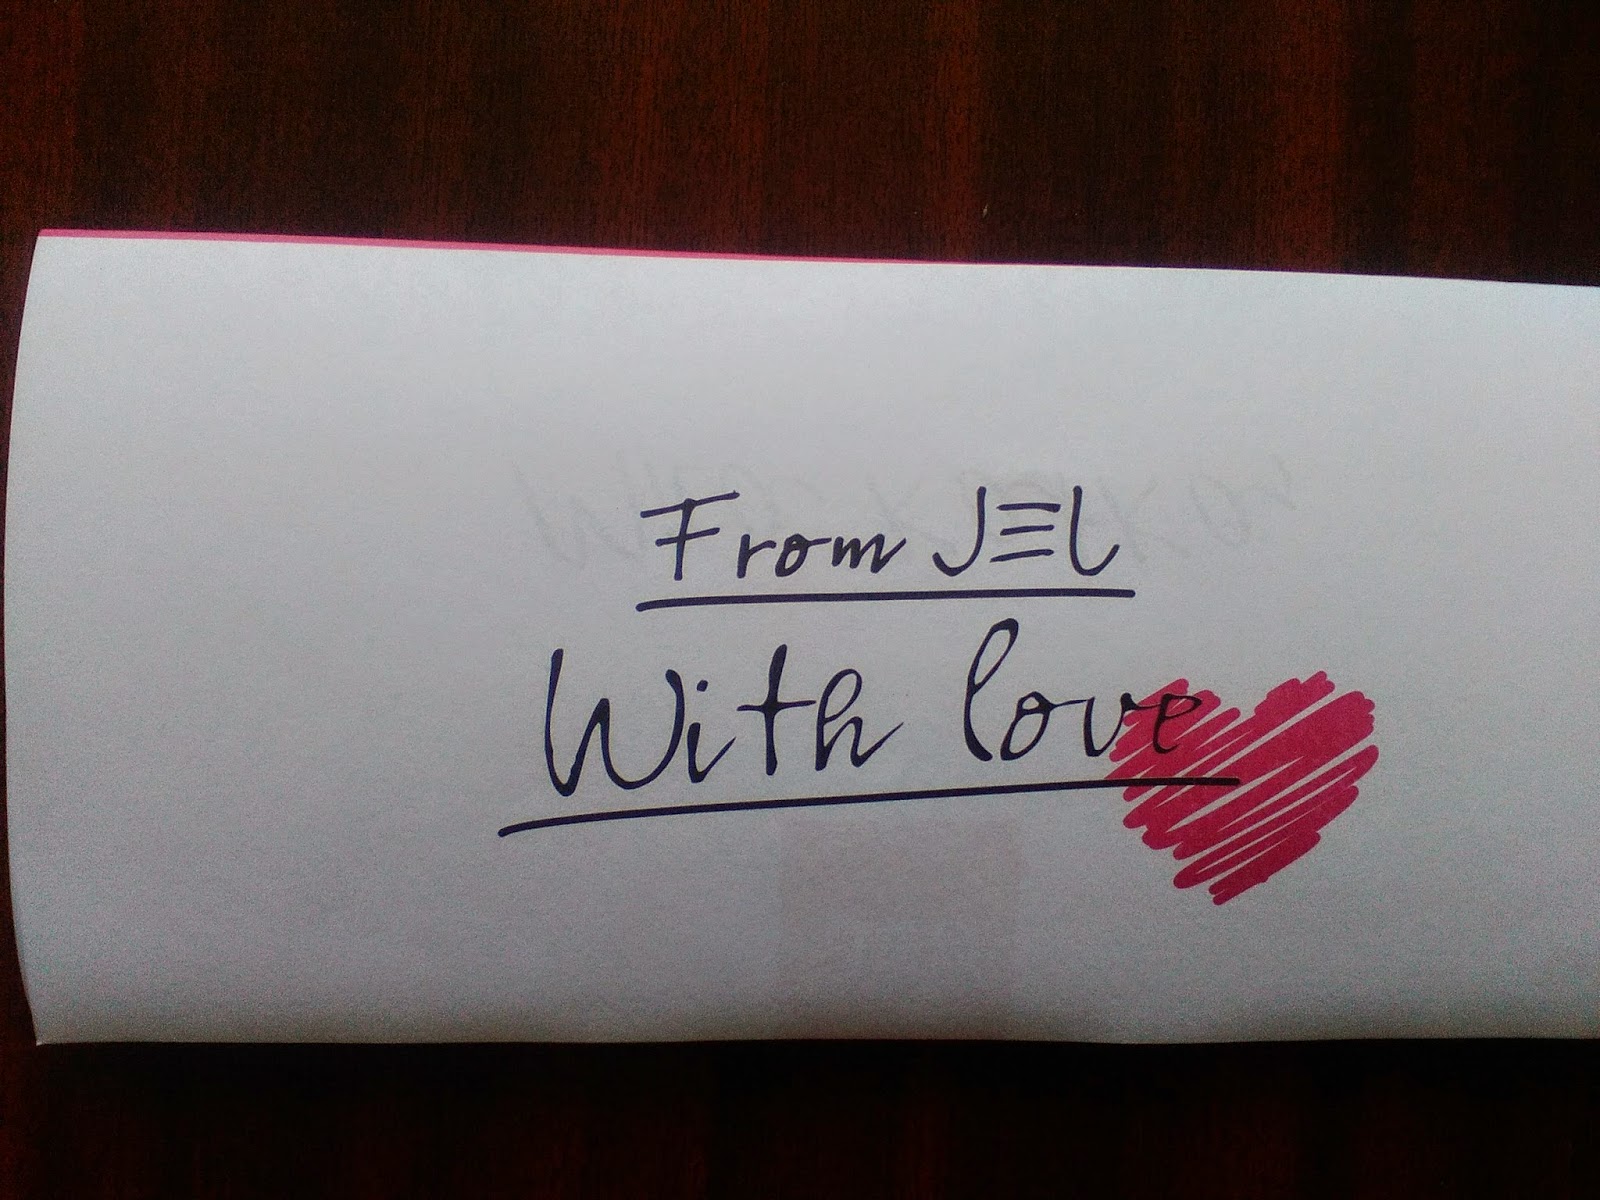 From JEL
With love